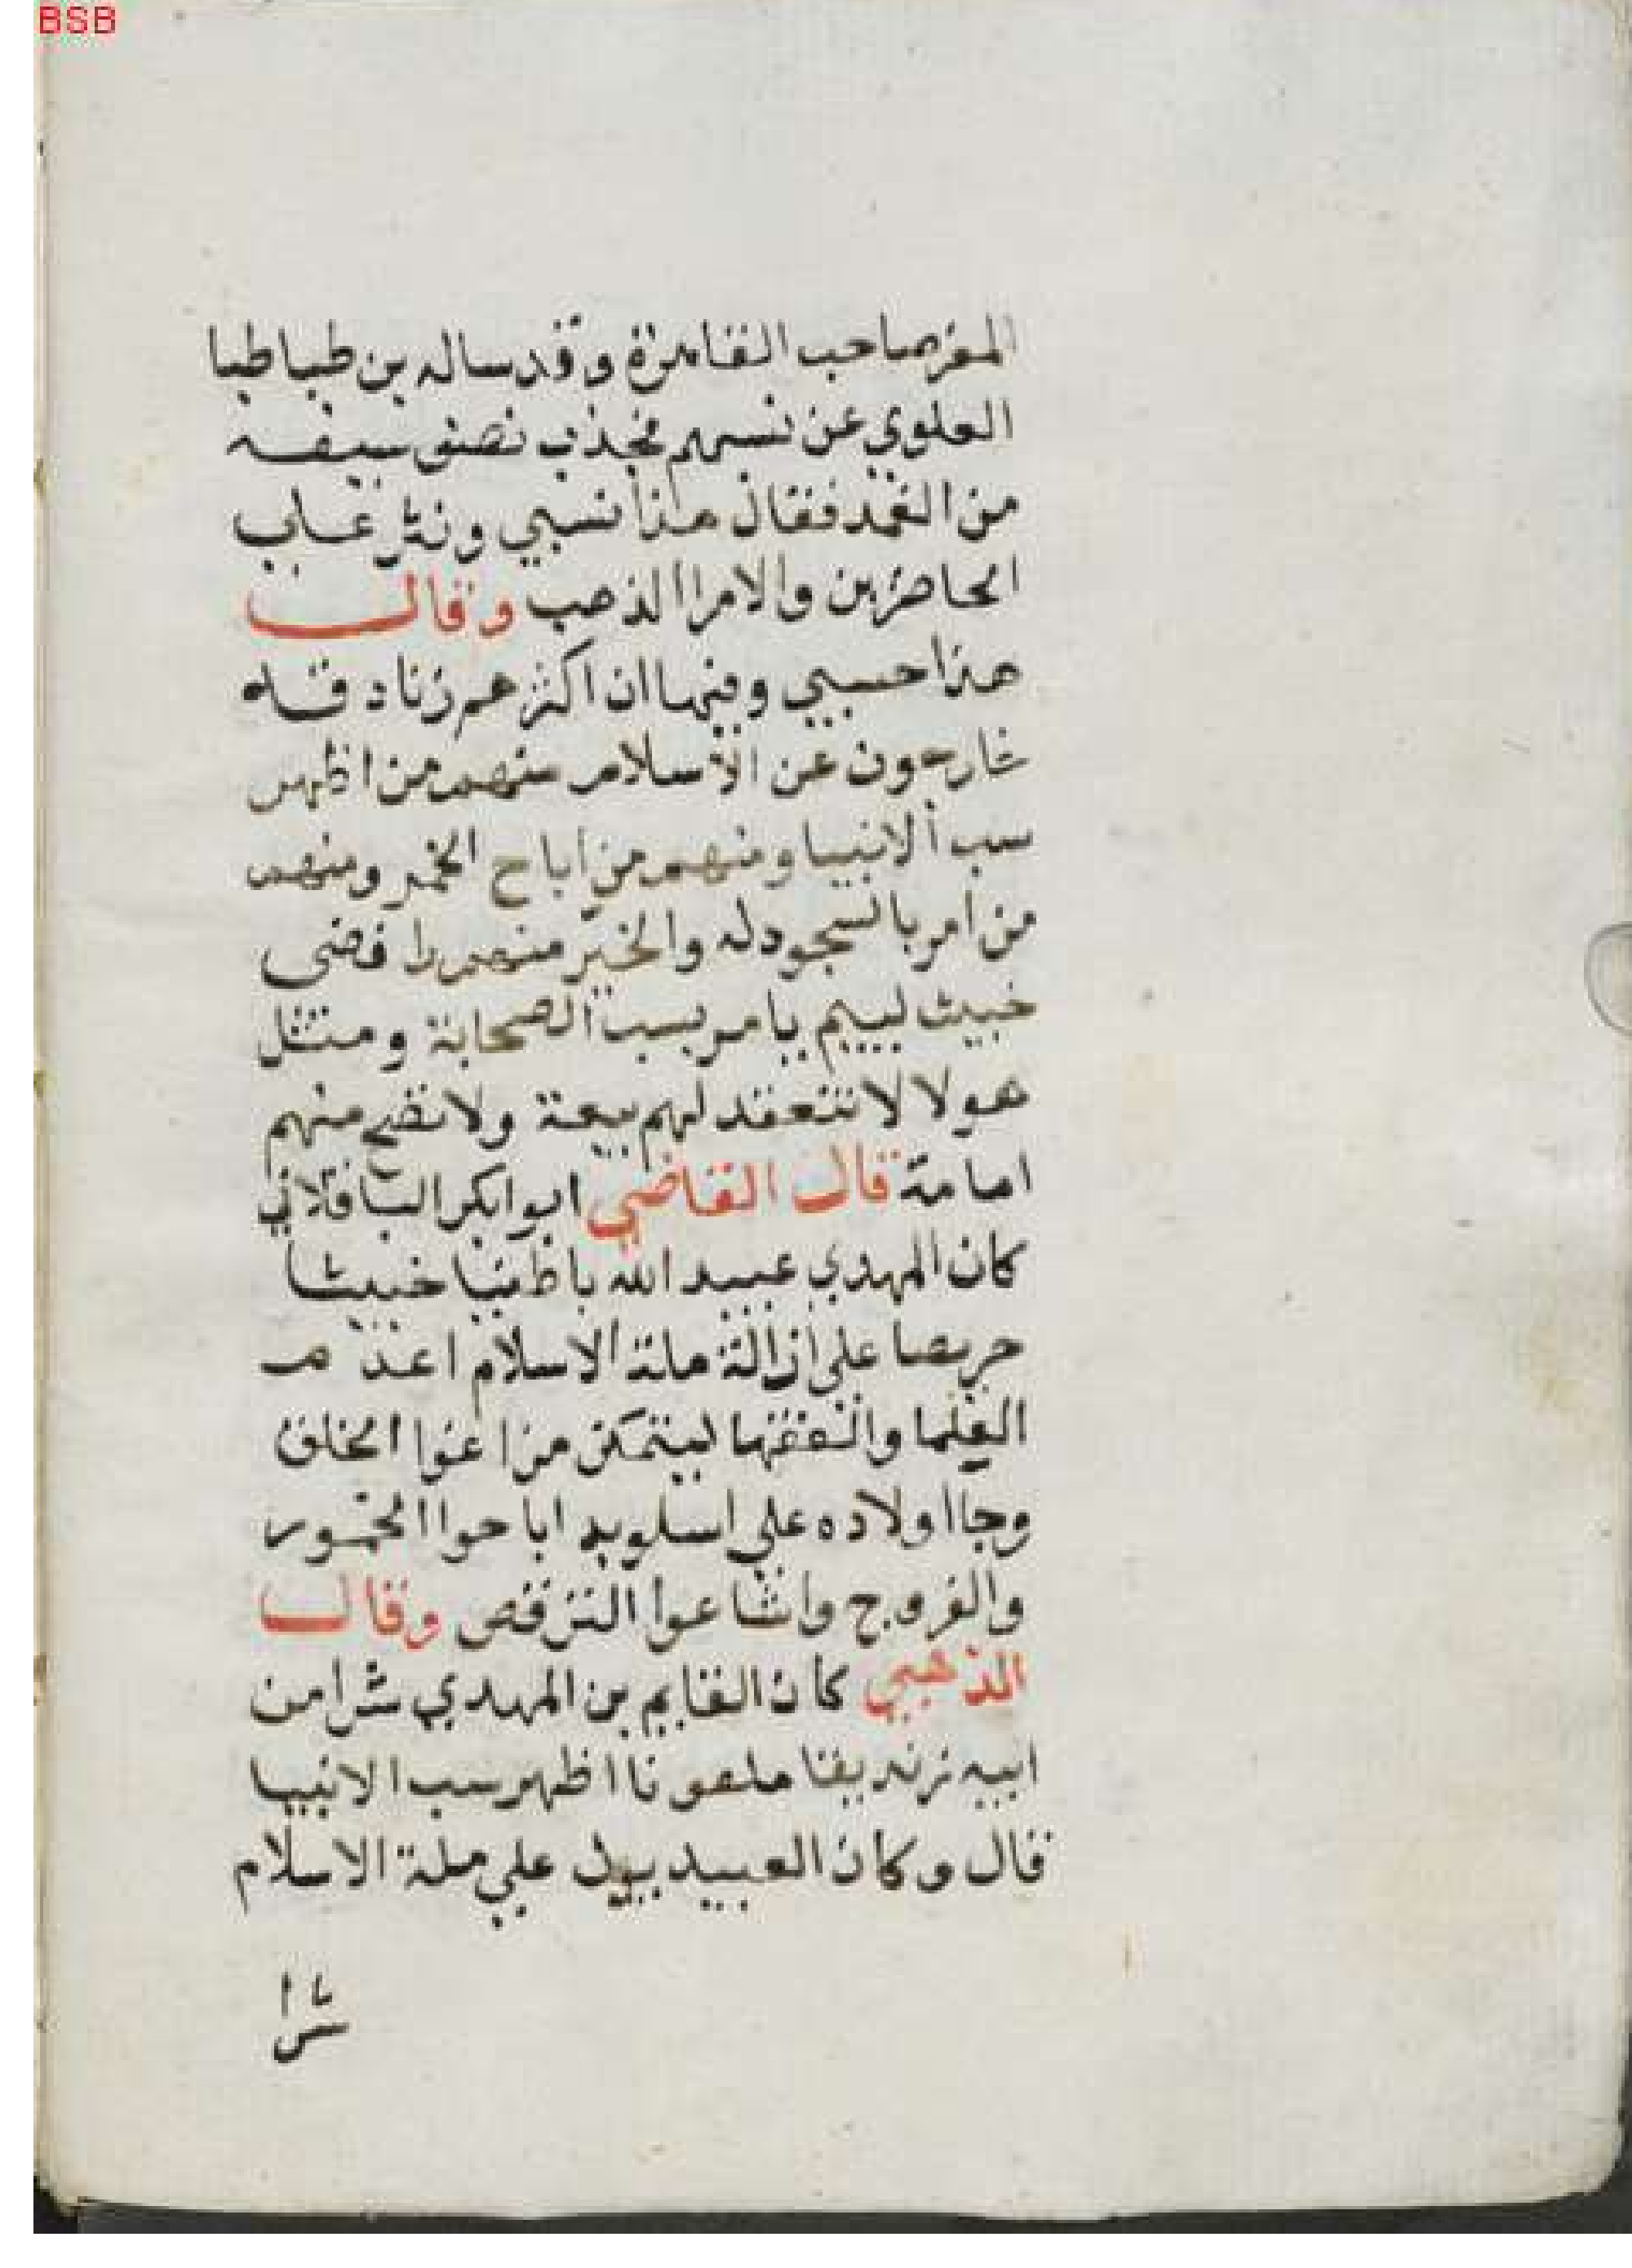 BSB
المعز صاحب القاهرة وقد ساله بن طباطبا
العلوي عن نسبهم فجذب نصف سيفه
من الغمد فقال هذا نسبي ونثر علي
الحاضرين والامرا الذهب وقال
هذا حسبي ومنها ان اكثرهم زنادقه
خارجون عن الاسلام منهم من اظهر
سب الانبيا ومنهم من اباح الخمر ومنهم
من امر بالسجود له والخير منهم رافضي
خبيث لييم يامر بسب الصحابة ومثل
هولا لا تنعقد لهم بيعة ولا تصح منهم
امامة قال القاضي ابوابكر الباقلاني
كان المهدي عبيد الله باطنيا خبيثا
حريصا على ازالة ملة الاسلام اعدم
العلما والفقها ليتمكن من اغوا الخلق
وجا اولاده علي اسلوبه اباحوا الخمور
والفروج واشاعوا الترفض وقال
الذهبي كان القايم بن المهدي شرا من
ابيه زنديقا ملعونا اظهر سب الانبيا
قال وكان العبيديون علي ملة الاسلام
شرا